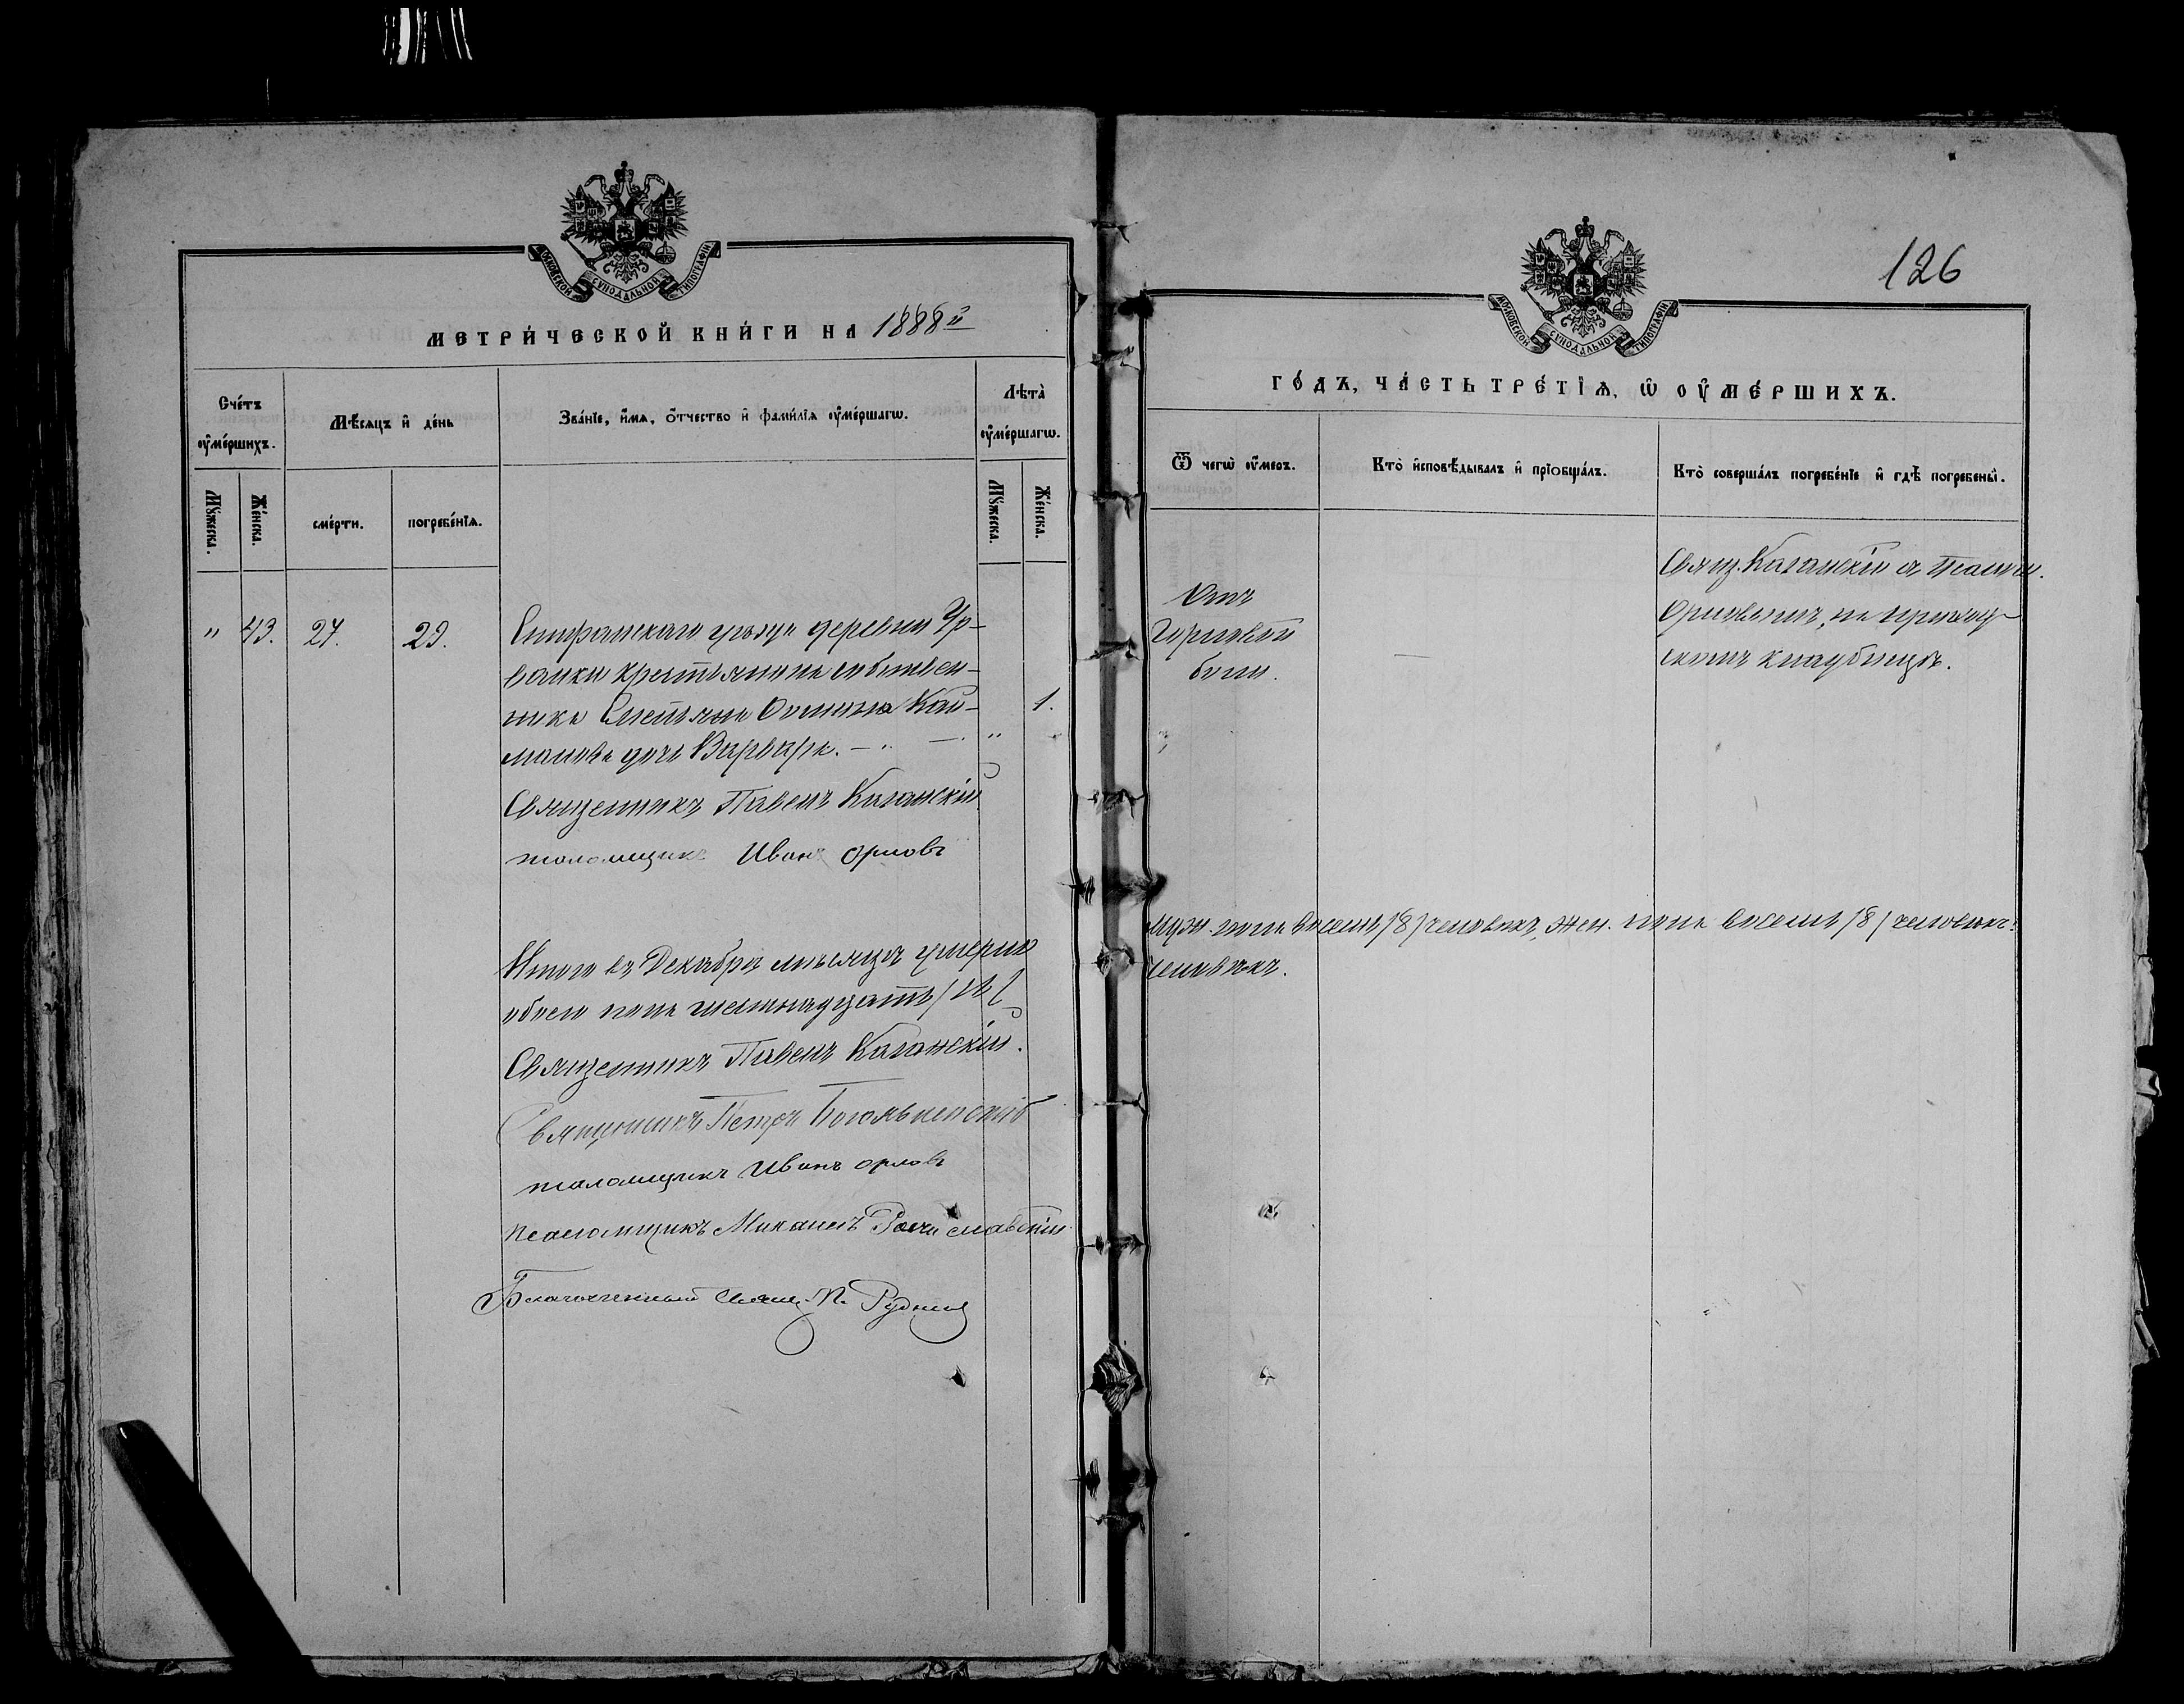 МОСКОВСКОЙ СѴНОДАЛЬНОЙ ТИПОГРАФІИ
МЕТРИ́ЧЕСКОЙ КНИ́ГИ НА 1888й
Сче́тъ оу҆ме́ршихъ.
Мѣ́сяцъ и҆ де́нь
Зва́нїе, и҆́мѧ, ѻ҆́тчество и҆ фами́лїѧ оу҆ме́ршагѡ.
Лѣта̀ оу҆ме́ршагѡ.
Мꙋ́жеска.
Же́нска.
сме́рти.
погребе́нїѧ.
Мꙋ́жеска.
Же́нска.
" 43. 27. 29.
уѣзда деревни Ур-
ванки крестьянина собствен-
ника Осипова Кал- 1.
дочь Варвара. — " — "
Священникъ Павелъ Казанскій
псаломщикъ Иванъ Орловъ
Итого въ Декабрѣ мѣсяцѣ умерло
обоего пола шестнадцать /16/
Священникъ Павелъ Казанскій.
Священникъ Петръ Богоявленскій
псаломщикъ Иванъ Орловъ
псаломщикъ Михаилъ
Благочинный Свящ. П. Рудневъ
126
МОСКОВСКОЙ СѴНОДАЛЬНОЙ ТИПОГРАФІИ
ГО́ДЪ, ЧА́СТЬ ТРЕ́ТЇѦ, Ѡ҆ ОУ҆МЕ́РШИХЪ.
Ѿ чегѡ̀ оу҆́меръ.
Кто̀ и҆сповѣ́дывалъ и҆ прїобща́лъ.
Кто̀ соверша́лъ погребе́нїе и҆ гдѣ̀ погребены̀.
Отъ
горловой
боли.
—
Свящ. Казанскій съ Псалом.
Орловымъ, на приход-
скомъ кладбищѣ.
муж. пола восемь /8/ человѣкъ, жен. пола восемь /8/ человѣкъ.
человѣкъ.